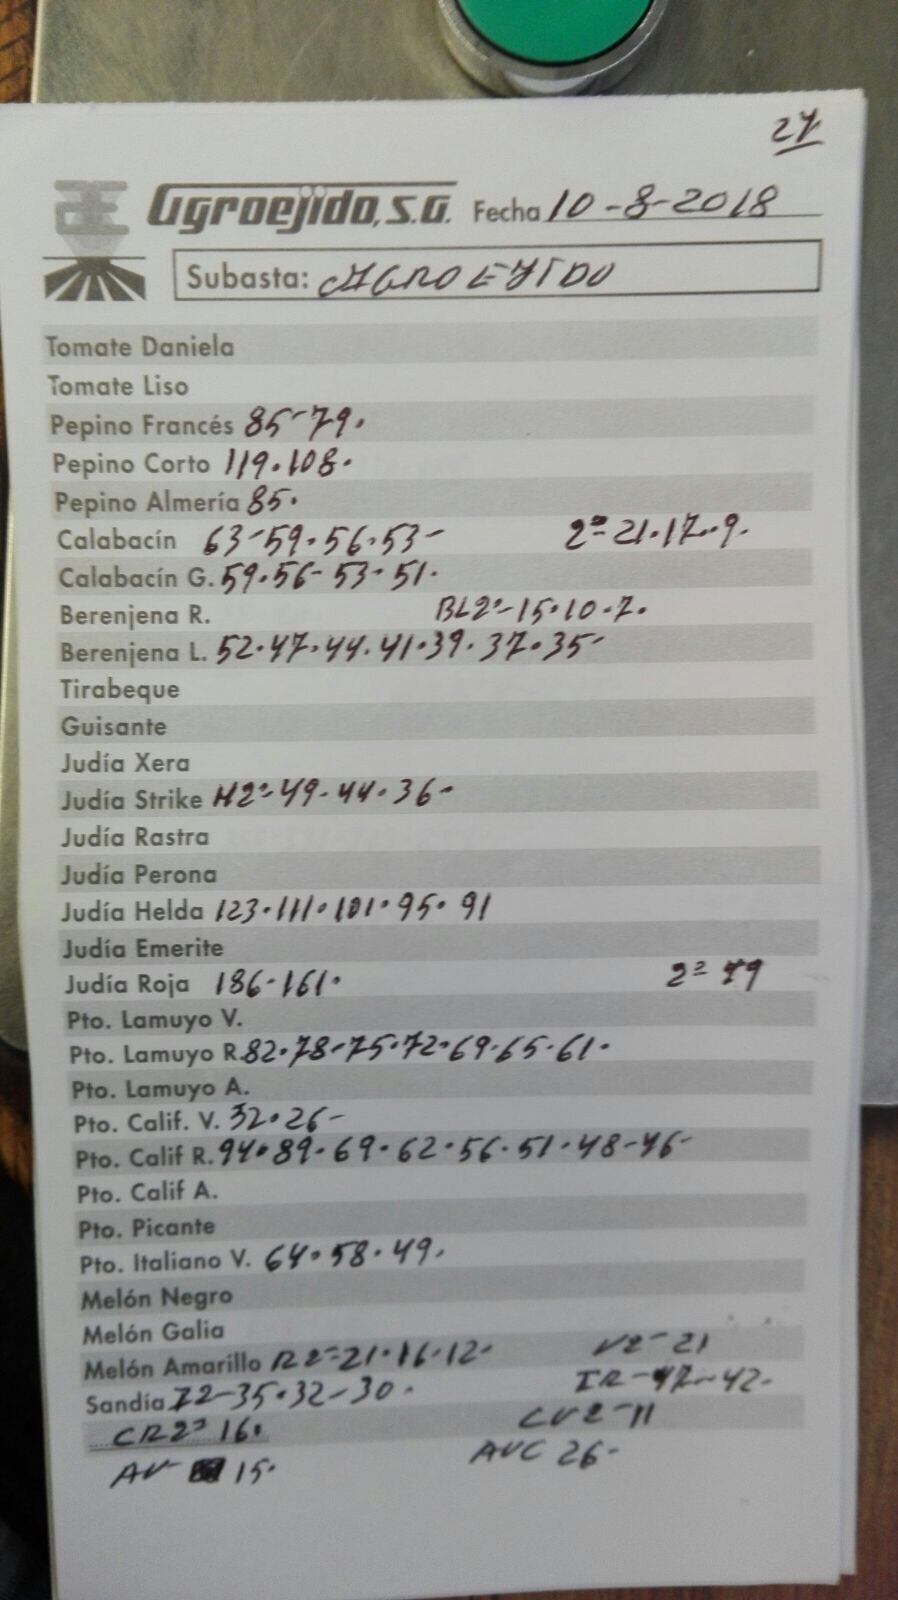 27
Agroejido, S.A. Fecha 10-8-2018
Subasta: AGROEJIDO
Tomate Daniela
Tomate Liso
Pepino Francés 85-79.
Pepino Corto 119.108.
Pepino Almería 85.
Calabacín 63-59.56.53- 2ª-21.17.9.
Calabacín G. 59.56-53.51.
Berenjena R. BL2ª-15.10.7.
Berenjena L. 52.47.44.41.39.37.35-
Tirabeque
Guisante
Judía Xera
Judía Strike H2ª-49-44.36-
Judía Rastra
Judía Perona
Judía Helda 123.111.101.95.91
Judía Emerite
Judía Roja 186-161. 2ª 79
Pto. Lamuyo V.
Pto. Lamuyo R. 82.78-75.72.69.65.61.
Pto. Lamuyo A.
Pto. Calif. V. 32.26-
Pto. Calif R. 94.89-69.62.56.51.48-46-
Pto. Calif A.
Pto. Picante
Pto. Italiano V. 64.58.49.
Melón Negro
Melón Galia
Melón Amarillo R2ª-21.16.12. V2-21
Sandía 72-35.32-30. IR-47-42.
CR2ª 16. CV2-11
AV- 15. AVC 26-